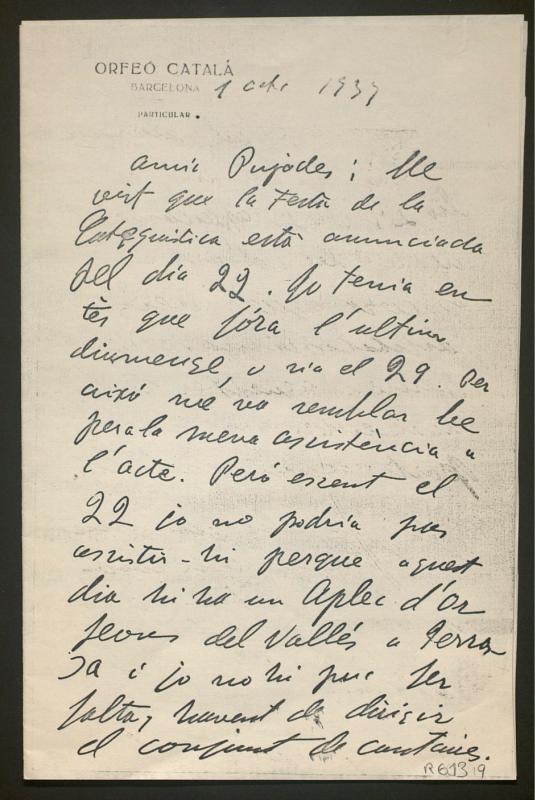 ORFEÓ CATALÀ
BARCELONA
PARTICULAR
1 octe 1939
amic Pujades: He
vist que la Festa de la
Catequística està anunciada
pel dia 22. Jo tenia en
tès que fóra l'ultim
diumenge, o sia el 29. Per
això me va semblar be
per a la meva assistència a
l'acte. Però essent el
22 jo no podria pas
assistir-hi perque aquest
dia hi ha un Aplec d'Or
feons del Vallés a Terras
sa i jo no hi puc fer
falta, havent de dirigir
el conjunt de cantaires.
R 613 19